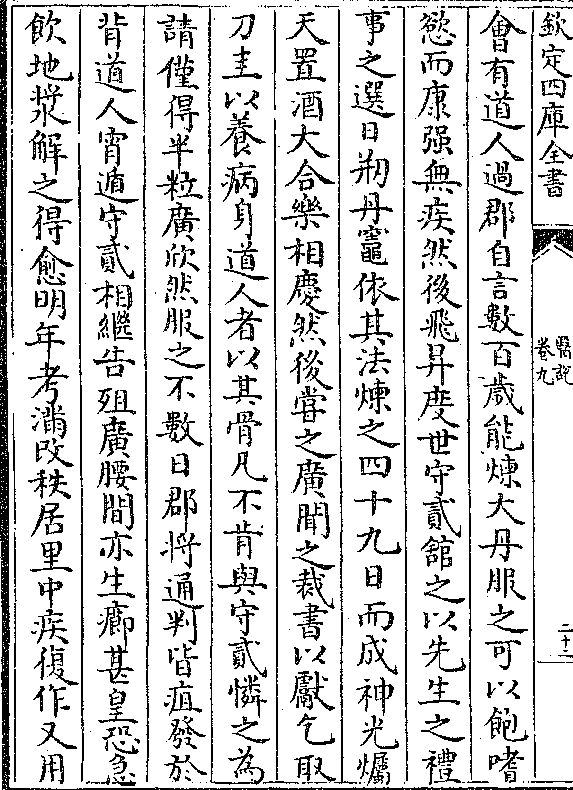 欽定四庫全書
醫說
卷九
二十二
會有道人過郡自言數百歲能煉大丹服之可以飽嗜
慾而康强無疾然後飛昇度世守貳舘之以先生之禮
事之選日剏丹竈依其法煉之四十九日而成神光燭
天置酒大合樂相慶然後嘗之廣聞之裁書以獻乞取
刀圭以養病身道人者以其骨凡不肯與守貳憐之為
請僅得半粒廣欣然服之不數日郡將通判皆疽發於
背道人宵遁守貳相繼告殂廣腰間亦生癤甚皇恐急
飲地漿解之得愈明年考滿改秩居里中疾復作又用